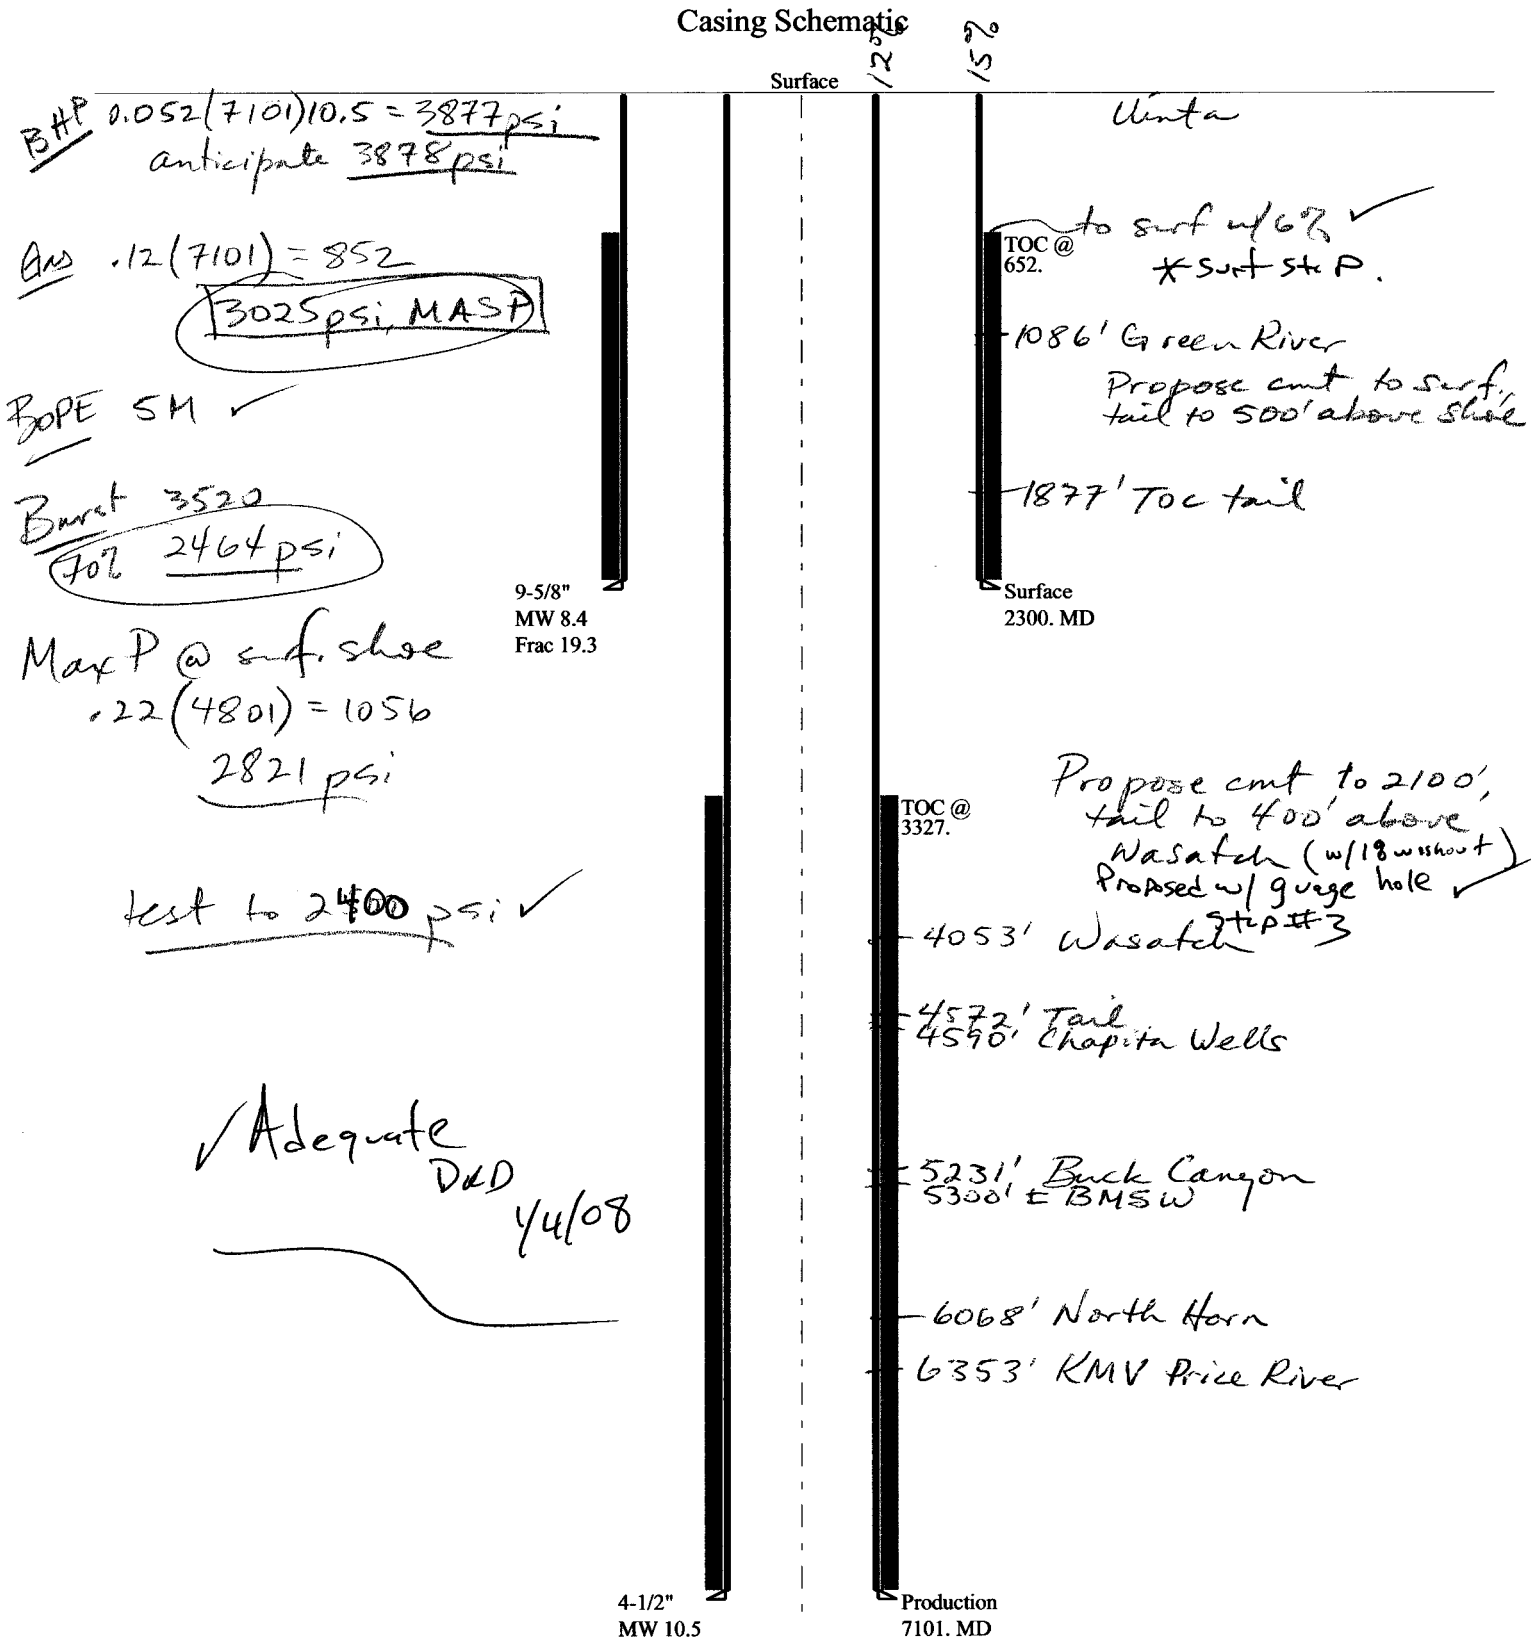 Casing Schematic
12%
15%
Surface
BHP 0.052(7101)10.5 = 3877 psi
anticipate 3878 psi
Gas .12(7101) = 852
3025 psi, MASP
BOPE 5M ✓
Burst 3520
70% 2464 psi
9-5/8"
MW 8.4
Frac 19.3
Max P @ surf. shoe
.22(4801) = 1056
2821 psi
test to 2400 psi ✓
✓ Adequate
DKD
1/4/08
4-1/2"
MW 10.5
Uinta
to surf w/6% ✓
* Surf stip.
TOC @
652.
1086' Green River
Propose cmt to surf,
tail to 500' above shoe
1877' TOC tail
Surface
2300. MD
Propose cmt to 2100',
tail to 400' above
Wasatch (w/18 washout)
Proposed w/ guage hole ✓
stip #3
TOC @
3327.
4053' Wasatch
4572' Tail
4590' Chapita Wells
5231' Buck Canyon
5300' ± BMSW
6068' North Horn
6353' KMV Price River
Production
7101. MD